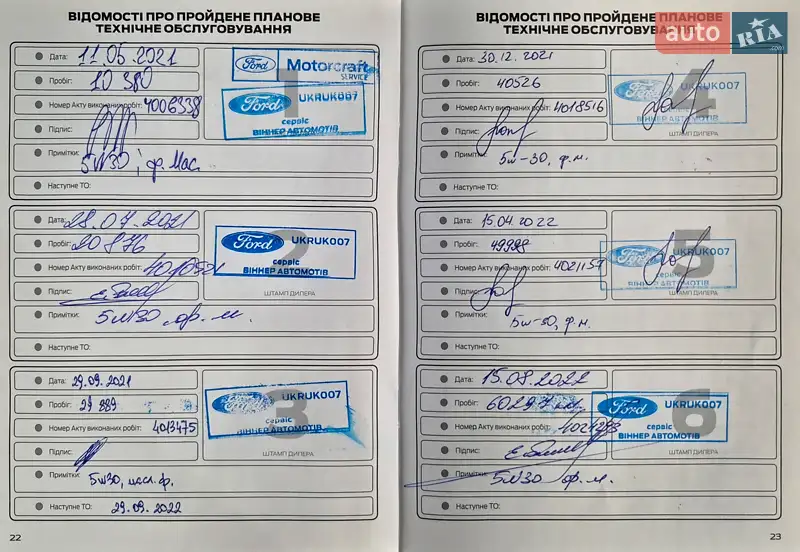 ВІДОМОСТІ ПРО ПРОЙДЕНЕ ПЛАНОВЕ
ТЕХНІЧНЕ ОБСЛУГОВУВАННЯ
Дата: 11.05.2021
Пробіг: 10 380
Номер Акту виконаних робіт: 4006338
Підпис:
Примітки: 5W30, ф. Мас.
Наступне ТО:
1
Ford Motorcraft
SERVICE
Ford UKRUK007
сервіс
ВІННЕР АВТОМОТІВ
Дата: 28.07.2021
Пробіг: 20 876
Номер Акту виконаних робіт:
Підпис:
Примітки: 5W30 ф. м.
Наступне ТО:
2
Ford UKRUK007
сервіс
ВІННЕР АВТОМОТІВ
ШТАМП ДИЛЕРА
Дата: 29.09.2021
Пробіг: 29 889
Номер Акту виконаних робіт: 4013475
Підпис:
Примітки: 5W30, масл. ф.
Наступне ТО: 29.09.2022
3
Ford UKRUK007
сервіс
ВІННЕР АВТОМОТІВ
ШТАМП ДИЛЕРА
22
ВІДОМОСТІ ПРО ПРОЙДЕНЕ ПЛАНОВЕ
ТЕХНІЧНЕ ОБСЛУГОВУВАННЯ
auto RIA.com
Дата: 30.12.2021
Пробіг: 40526
Номер Акту виконаних робіт: 4018516
Підпис:
Примітки: 5w-30, ф.м.
Наступне ТО:
4
Ford UKRUK007
сервіс
ВІННЕР АВТОМОТІВ
ШТАМП ДИЛЕРА
Дата: 15.04.2022
Пробіг: 49998
Номер Акту виконаних робіт: 4021157
Підпис:
Примітки: 5w-30, ф.м.
Наступне ТО:
5
Ford UKRUK007
сервіс
ВІННЕР АВТОМОТІВ
ШТАМП ДИЛЕРА
Дата: 15.08.2022
Пробіг: 60297 км
Номер Акту виконаних робіт:
Підпис:
Примітки: 5W30 ф. м.
Наступне ТО:
6
Ford UKRUK007
сервіс
ВІННЕР АВТОМОТІВ
ШТАМП ДИЛЕРА
23